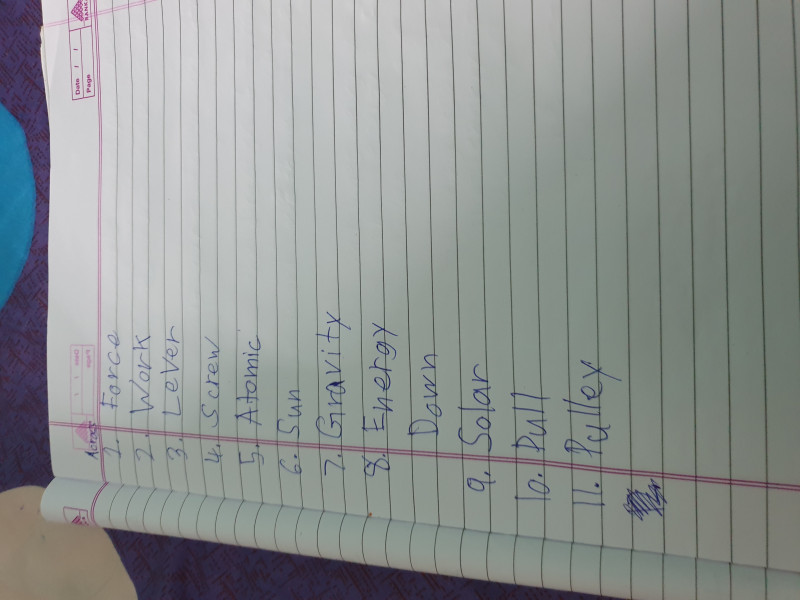 Date / /
Page
RANK
Across
1. Force
2. Work
3. Lever
4. Screw
5. Atomic
6. Sun
7. Gravity
8. Energy
Down
9. Solar
10. Pull
11. Pulley